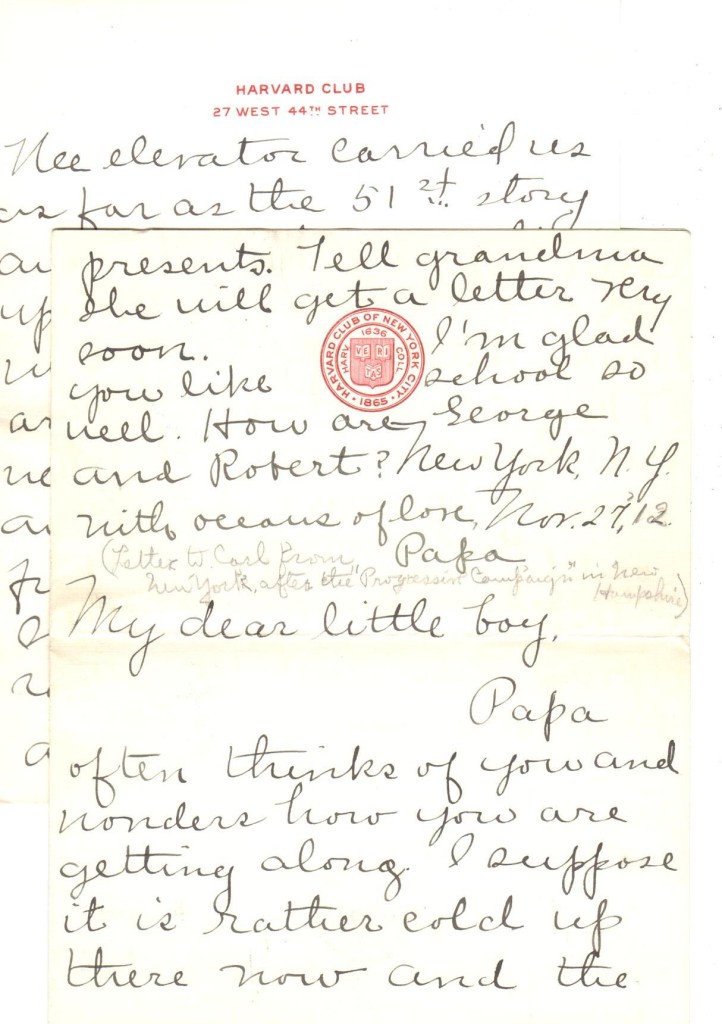 HARVARD CLUB
27 WEST 44TH STREET
The elevator carried us
as far as the 51st story
presents. Tell grandma
she will get a letter very
soon. I'm glad
you like school so
well. How are George
and Robert? New York, N.Y.
with oceans of love, Nov. 27, '12.
Papa
(Letter to Carl from
New York, after the "Progressive Campaign" in New
Hampshire)
My dear little boy,
Papa
often thinks of you and
wonders how you are
getting along. I suppose
it is rather cold up
there now and the
HARVARD CLUB OF NEW YORK CITY
1865
HARV 1636 COLL
VE RI TAS